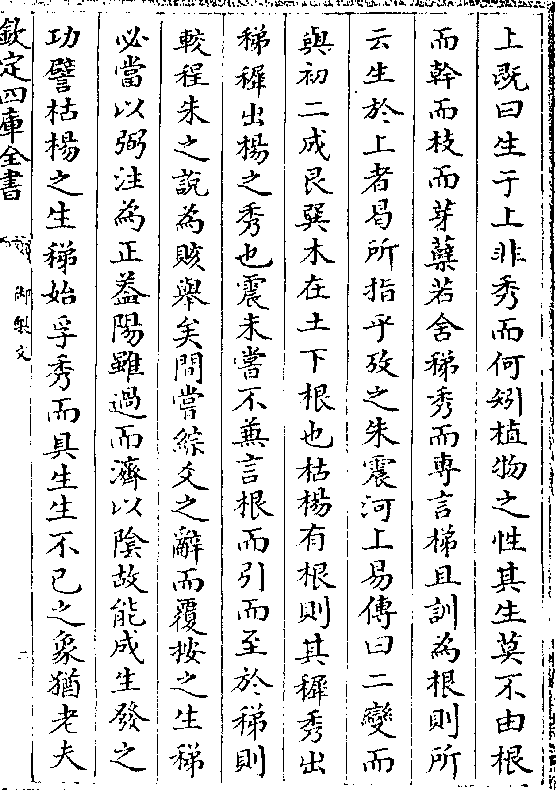 上既曰生于上非秀而何矧植物之性其生莫不由根
而幹而枝而芽蘖若舍稊秀而專言梯且訓為根則所
云生於上者曷所指乎攷之朱震河上易傳曰二變而
與初二成艮巽木在土下根也枯楊有根則其穉秀出
稊穉出楊之秀也震未嘗不兼言根而引而至於稊則
較程朱之說為賅舉矣間嘗綜爻之辭而覆按之生稊
必當以弼注為正葢陽雖過而濟以陰故能成生發之
功譬枯楊之生稊始孚秀而具生生不已之象猶老夫
欽定四庫全書
御製文
二